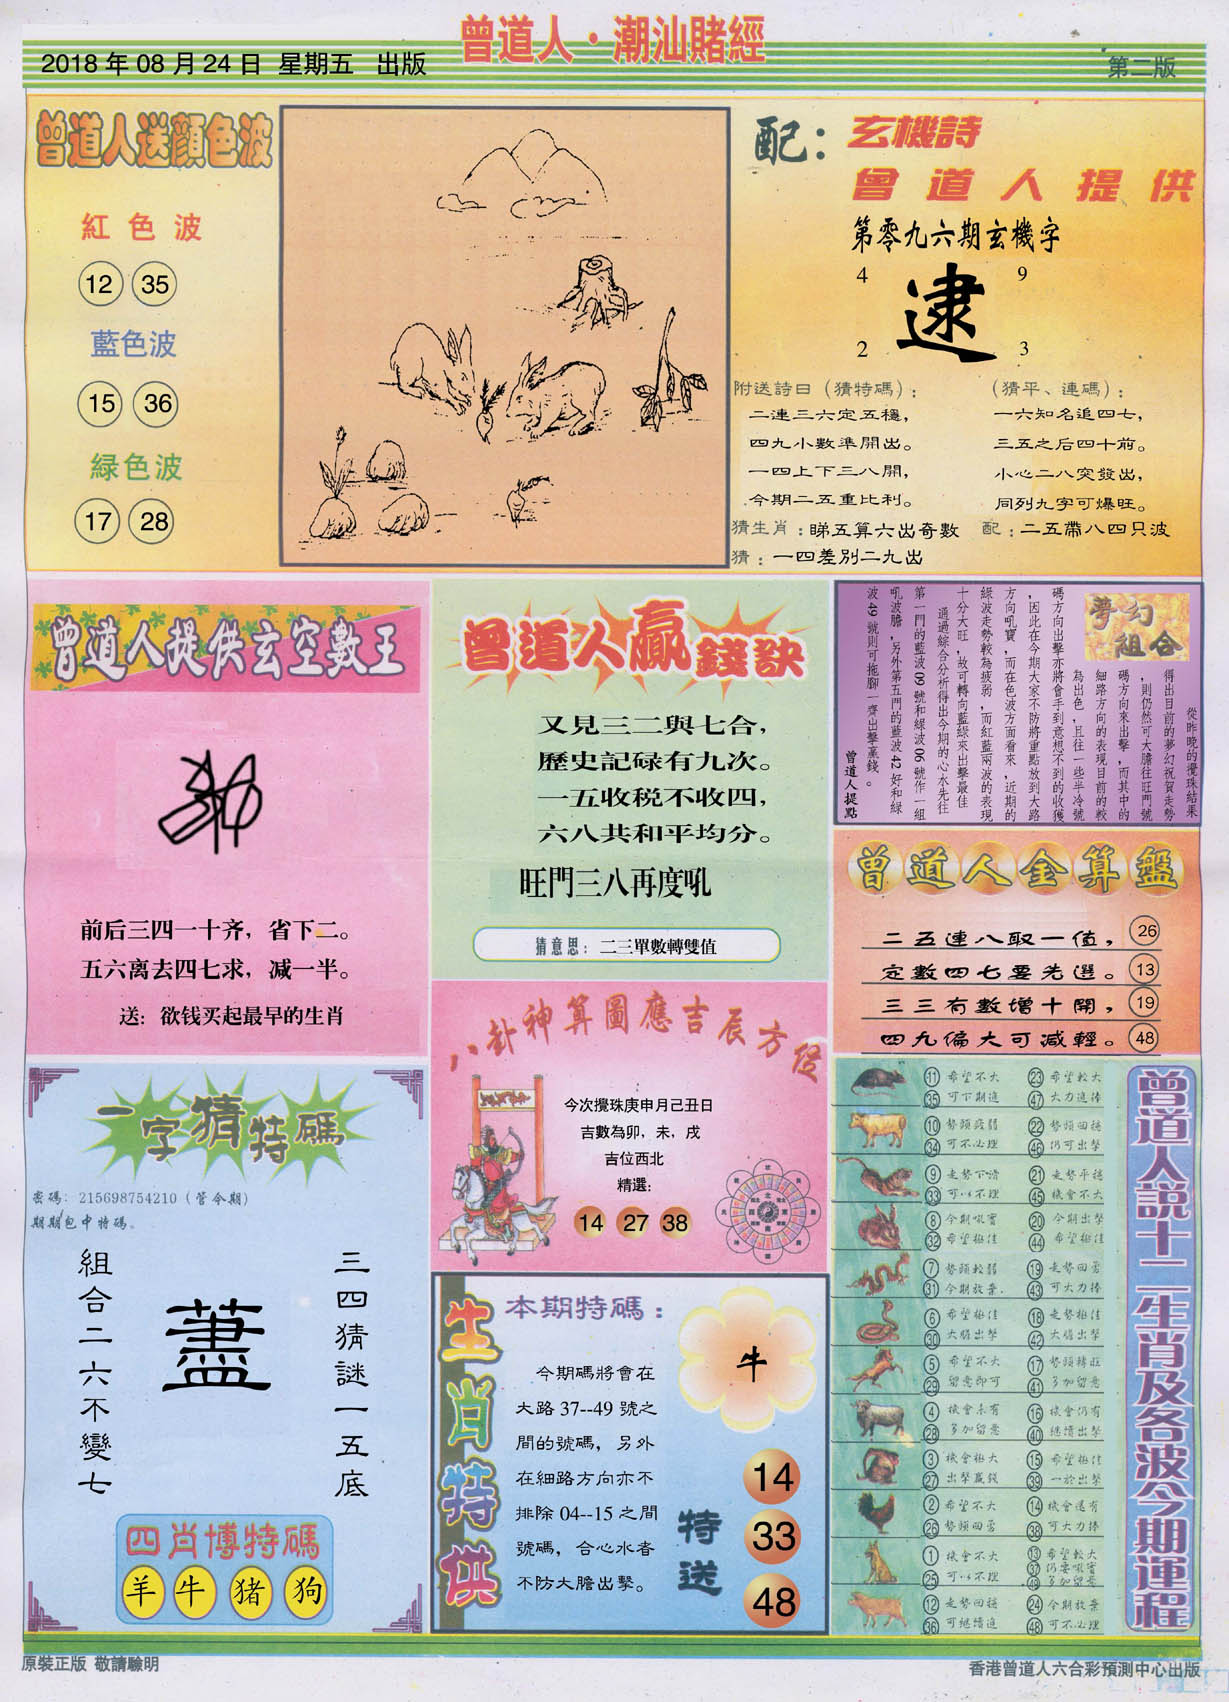 曾道人·潮汕賭經
2018年08月24日 星期五 出版
第二版
曾道人送顏色波
紅色波
12 35
藍色波
15 36
緑色波
17 28
配：玄機詩
曾道人提供
第零九六期玄機字
4 9
逮
2 3
附送詩日（猜特碼）：
二連三六定五穩，
四九小數準開出。
一四上下三八開，
今期二五重比利。
（猜平、連碼）：
一六知名追四七，
三五之后四十前。
小心二八突發出，
同列九字可爆旺。
猜生肖：睇五算六出奇數
配：二五帶八四只波
猜：一四差別二九出
曾道人提供玄空數王
前后三四一十齐，省下二。
五六离去四七求，减一半。
送：欲钱买起最早的生肖
曾道人贏錢訣
又見三二與七合，
歷史記碌有九次。
一五收税不收四，
六八共和平均分。
旺門三八再度吼
猜意思：二三單數轉雙值
夢幻組合
從昨晚的攪珠結果
得出目前的夢幻祝賀走勢
，則仍然可大膽往旺門號
碼方向來出擊，而其中的
細路方向的表現目前的較
為出色，且往一些半冷號
碼方向出擊亦將會手到意想不到的收獲
，因此在今期大家不防將重點放到大路
方向吼寶，而在色波方面看來，近期的
綠波走勢較為疲弱，而紅藍兩波的表現
十分大旺，故可轉向藍綠來出擊最佳
通過綜合分析得出今期的心水先往
第一門的藍波09號和綠波06號作一組
吼波膽，另外第五門的藍波42好和綠
波49號則可拖腳一齊出擊贏錢。
曾道人提點
曾道人金算盤
二五連八取一值， 26
定數四七要先選。 13
三三有數增十開， 19
四九偏大可減輕。 48
八卦神算圖應吉辰方位
今次攪珠庚申月己丑日
吉數為卯，未，戌
吉位西北
精選：
14 27 38
一字猜特碼
密碼：215698754210（管令期）
期期包中特碼。
三四猜謎一五底
組合二六不變七
四肖博特碼
羊 牛 猪 狗
生肖特供
本期特碼：
牛
今期碼將會在
大路37--49號之
間的號碼，另外
在細路方向亦不
排除04--15之間
號碼，合心水者
不防大膽出擊。
特送
14
33
48
曾道人説十二生肖及各波今期運程
11 希望不大 23 希望較大
35 可下期進 47 大力進捧
10 勢頭疲弱 22 勢頭回穩
34 可不必理 46 仍可出擊
9 走勢下滑 21 走勢平穩
33 可以不理 45 機會不大
8 今期吼寶 20 今期出擊
32 希望極佳 44 希望極佳
7 勢頭較弱 19 走勢回勇
31 今期放棄 43 可大力捧
6 希望極佳 18 走勢極佳
30 大膽出擊 42 大膽出擊
5 希望不大 17 勢頭轉旺
29 留意即可 41 多加留意
4 機會未有 16 機會仍有
28 多加留意 40 繼續出擊
3 機會極大 15 希望極佳
27 出擊贏錢 39 一於出擊
2 希望不大 14 機會還有
26 勢頭回勇 38 可大力捧
1 機會不大 13 希望較大
37 仍要吼實
25 可以不理 49 多加留意
12 走勢回穩 24 今期放棄
36 可繼續追 48 可不必理
原裝正版 敬請驗明
香港曾道人六合彩預測中心出版